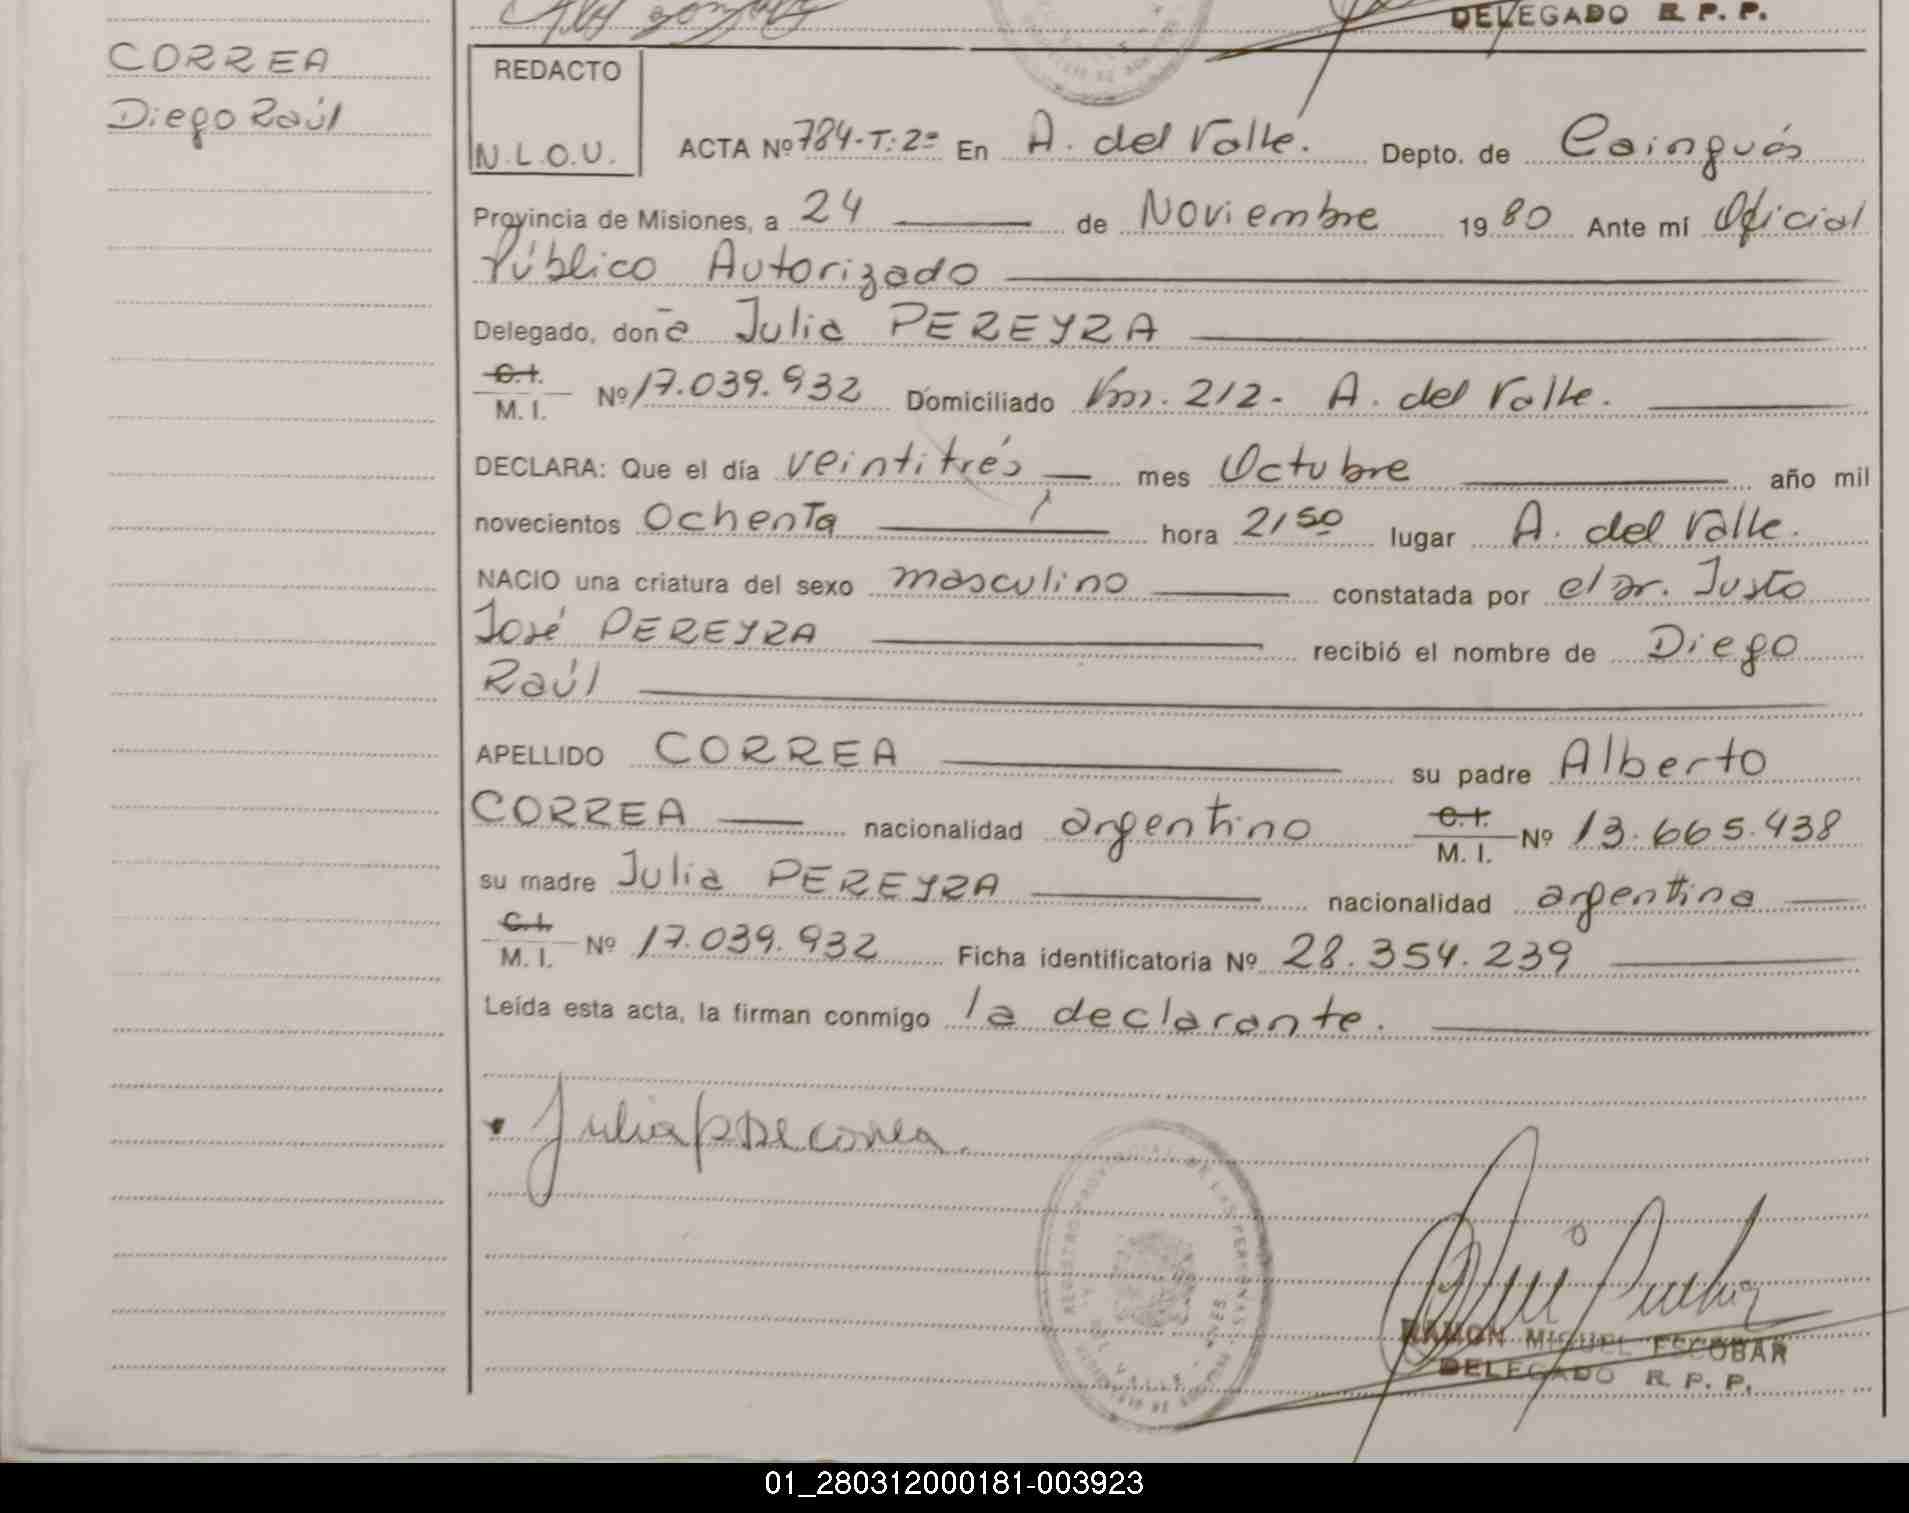 DELEGADO R. P. P.
CORREA
Diego Raúl
REDACTO
N.L.O.U.
ACTA Nº 784-T:2º En A. del Valle. Depto. de Cainguás
Provincia de Misiones, a 24 de Noviembre 1980 Ante mí Oficial
Público Autorizado
Delegado, doña Julia PEREYRA
C.I.
M. I. Nº 17.039.932 Domiciliado Km. 212- A. del Valle.
DECLARA: Que el día veintitrés mes Octubre año mil
novecientos Ochenta hora 21 50 lugar A. del Valle.
NACIO una criatura del sexo masculino constatada por el Dr. Justo
José PEREYRA recibió el nombre de Diego
Raúl
APELLIDO CORREA su padre Alberto
CORREA nacionalidad argentino C.I. M. I. Nº 13.665.438
su madre Julia PEREYRA nacionalidad argentina
C.I.
M. I. Nº 17.039.932 Ficha identificatoria Nº 28.354.239
Leída esta acta, la firman conmigo la declarante.
Julia P de correa.
RAMON MIGUEL ESCOBAR
DELEGADO R. P. P.
01_280312000181-003923